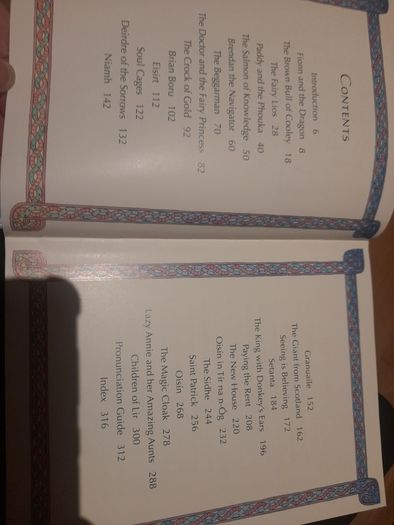 CONTENTS
Introduction 6
Fionn and the Dragon 8
The Brown Bull of Cooley 18
The Fairy Lios 28
Paddy and the Phouka 40
The Salmon of Knowledge 50
Brendan the Navigator 60
The Beggarman 70
The Doctor and the Fairy Princess 82
The Crock of Gold 92
Brian Boru 102
Eisirt 112
Soul Cages 122
Deirdre of the Sorrows 132
Niamh 142
Granuaile 152
The Giant from Scotland 162
Seeing is Believing 172
Setanta 184
The King with Donkey's Ears 196
Paying the Rent 208
The New House 220
Oisin in Tir na n-Óg 232
The Sidhe 244
Saint Patrick 256
Oisin 268
The Magic Cloak 278
Lazy Annie and her Amazing Aunts 288
Children of Lir 300
Pronunciation Guide 312
Index 316